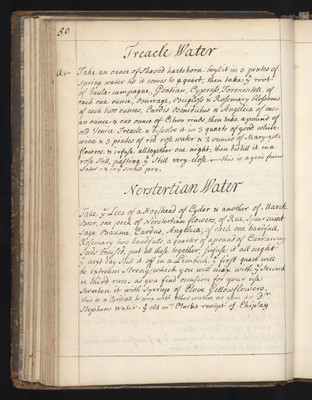 50
Treacle Water
Take an ounce of Shaved hartshorn boyl it in 3 pintes of
spring water till it comes to a quart, then take ye root
of Enula-campagne, Gentian, Cypress, Tormentell, of
each one ounce, Burrage, Bugloss & Rosemary blossoms
of each two ounces, Cardus Benedictus & Angelica of each
an ounce & one ounce of Citron rinds, then take a pound of
old Venice Treacle & dissolve it in 3 quarts of good white
wine & 3 pintes of red rose water & 2 ounces of Marygold
flowers, & infuse altogether one night, then distill it in a
rose Still, pasting ye Still very close
Norstertian Water
Take ye Lees of a Hogshead of Cyder & another of March
Beer, one peck of Norstertian flowers, of Rue, Spearmint
Sage Baume, Cardus, Angelica, of each one handfull
Rosemary two handfulls a quarter of a pound of Carraway
Seeds bruised, put all these together, infuse it all night
ye next day Still it off in a Limbeck, ye first quart will
be extream Strong, which you will mix with ye Second
or third runs, as you find occasion for your use
Sweeten it with Syrrup of Clove Gillowflowers.
this is a Cordiall to mix with other waters as you do Dr
Stephens Water